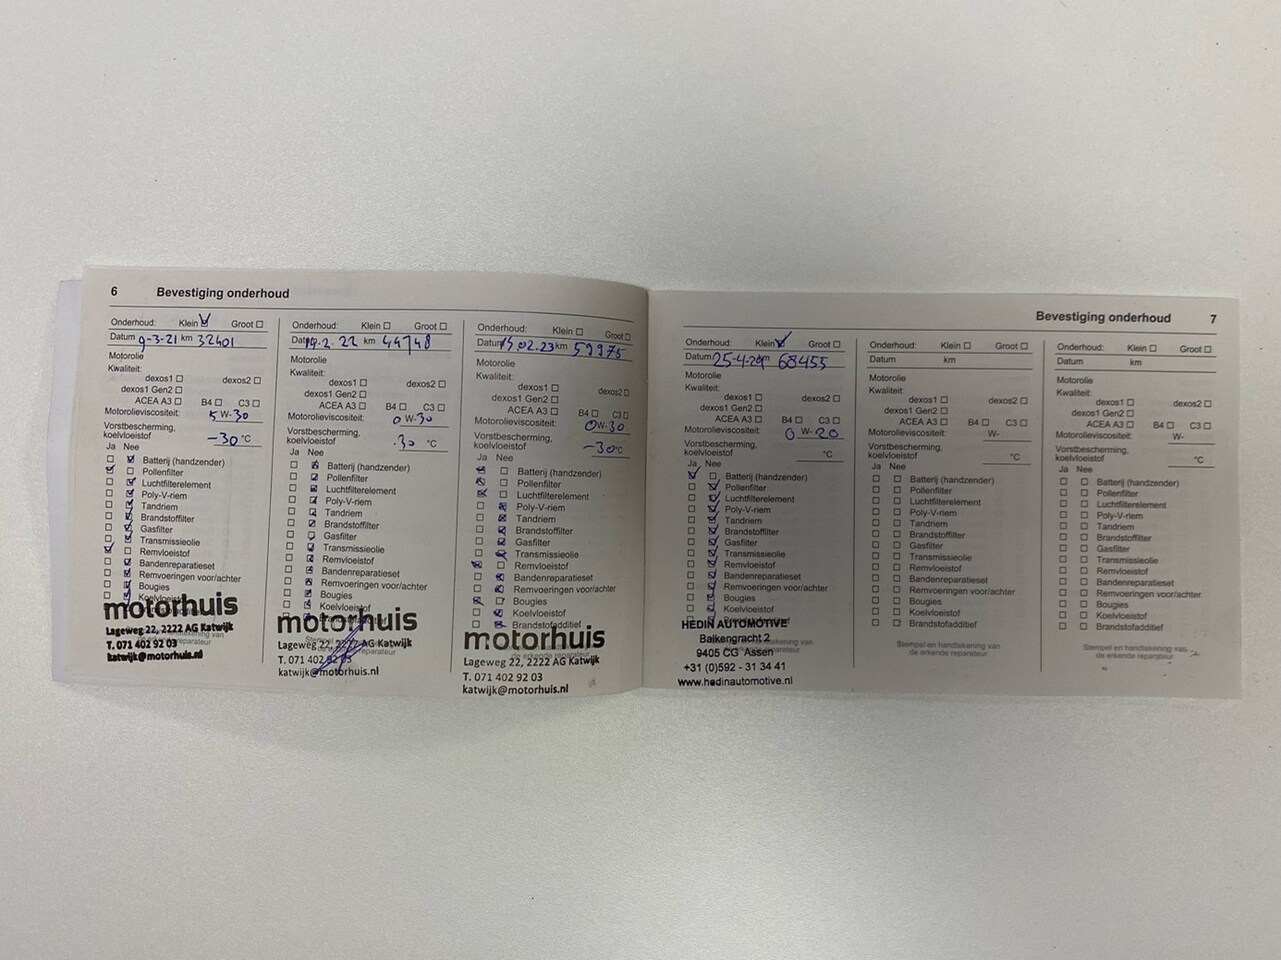 6 Bevestiging onderhoud
Onderhoud: Klein Groot
Datum 9-3-21 km 32401
Motorolie
Kwaliteit:
dexos1 dexos2
dexos1 Gen2
ACEA A3 B4 C3
Motorolieviscositeit: 5 W-30
Vorstbescherming,
koelvloeistof -30 °C
Ja Nee
Batterij (handzender)
Pollenfilter
Luchtfilterelement
Poly-V-riem
Tandriem
Brandstoffilter
Gasfilter
Transmissieolie
Remvloeistof
Bandenreparatieset
Remvoeringen voor/achter
Bougies
Koelvloeistof
motorhuis
Lageweg 22, 2222 AG Katwijk
T. 071 402 92 03
katwijk@motorhuis.nl
Onderhoud: Klein Groot
Datum 14.2.22 km 44748
Motorolie
Kwaliteit:
dexos1 dexos2
dexos1 Gen2
ACEA A3 B4 C3
Motorolieviscositeit: 0 W-30
Vorstbescherming,
koelvloeistof -30 °C
Ja Nee
Batterij (handzender)
Pollenfilter
Luchtfilterelement
Poly-V-riem
Tandriem
Brandstoffilter
Gasfilter
Transmissieolie
Remvloeistof
Bandenreparatieset
Remvoeringen voor/achter
Bougies
Koelvloeistof
motorhuis
Lageweg 22, 2222 AG Katwijk
T. 071 402 92 03
katwijk@motorhuis.nl
Onderhoud: Klein Groot
Datum 15.02.23 km 59975
Motorolie
Kwaliteit:
dexos1 dexos2
dexos1 Gen2
ACEA A3 B4 C3
Motorolieviscositeit: 0 W-30
Vorstbescherming,
koelvloeistof -30 °C
Ja Nee
Batterij (handzender)
Pollenfilter
Luchtfilterelement
Poly-V-riem
Tandriem
Brandstoffilter
Gasfilter
Transmissieolie
Remvloeistof
Bandenreparatieset
Remvoeringen voor/achter
Bougies
Koelvloeistof
Brandstofadditief
motorhuis
Lageweg 22, 2222 AG Katwijk
T. 071 402 92 03
katwijk@motorhuis.nl
Bevestiging onderhoud 7
Onderhoud: Klein Groot
Datum 25-4-24 km 68455
Motorolie
Kwaliteit:
dexos1 dexos2
dexos1 Gen2
ACEA A3 B4 C3
Motorolieviscositeit: 0 W-20
Vorstbescherming,
koelvloeistof °C
Ja Nee
Batterij (handzender)
Pollenfilter
Luchtfilterelement
Poly-V-riem
Tandriem
Brandstoffilter
Gasfilter
Transmissieolie
Remvloeistof
Bandenreparatieset
Remvoeringen voor/achter
Bougies
Koelvloeistof
HEDIN AUTOMOTIVE
Balkengracht 2
9405 CG Assen
+31 (0)592 - 31 34 41
www.hedinautomotive.nl
Onderhoud: Klein Groot
Datum km
Motorolie
Kwaliteit:
dexos1 dexos2
dexos1 Gen2
ACEA A3 B4 C3
Motorolieviscositeit: W-
Vorstbescherming,
koelvloeistof °C
Ja Nee
Batterij (handzender)
Pollenfilter
Luchtfilterelement
Poly-V-riem
Tandriem
Brandstoffilter
Gasfilter
Transmissieolie
Remvloeistof
Bandenreparatieset
Remvoeringen voor/achter
Bougies
Koelvloeistof
Brandstofadditief
Stempel en handtekening van
de erkende reparateur
Onderhoud: Klein Groot
Datum km
Motorolie
Kwaliteit:
dexos1 dexos2
dexos1 Gen2
ACEA A3 B4 C3
Motorolieviscositeit: W-
Vorstbescherming,
koelvloeistof °C
Ja Nee
Batterij (handzender)
Pollenfilter
Luchtfilterelement
Poly-V-riem
Tandriem
Brandstoffilter
Gasfilter
Transmissieolie
Remvloeistof
Bandenreparatieset
Remvoeringen voor/achter
Bougies
Koelvloeistof
Brandstofadditief
Stempel en handtekening van
de erkende reparateur